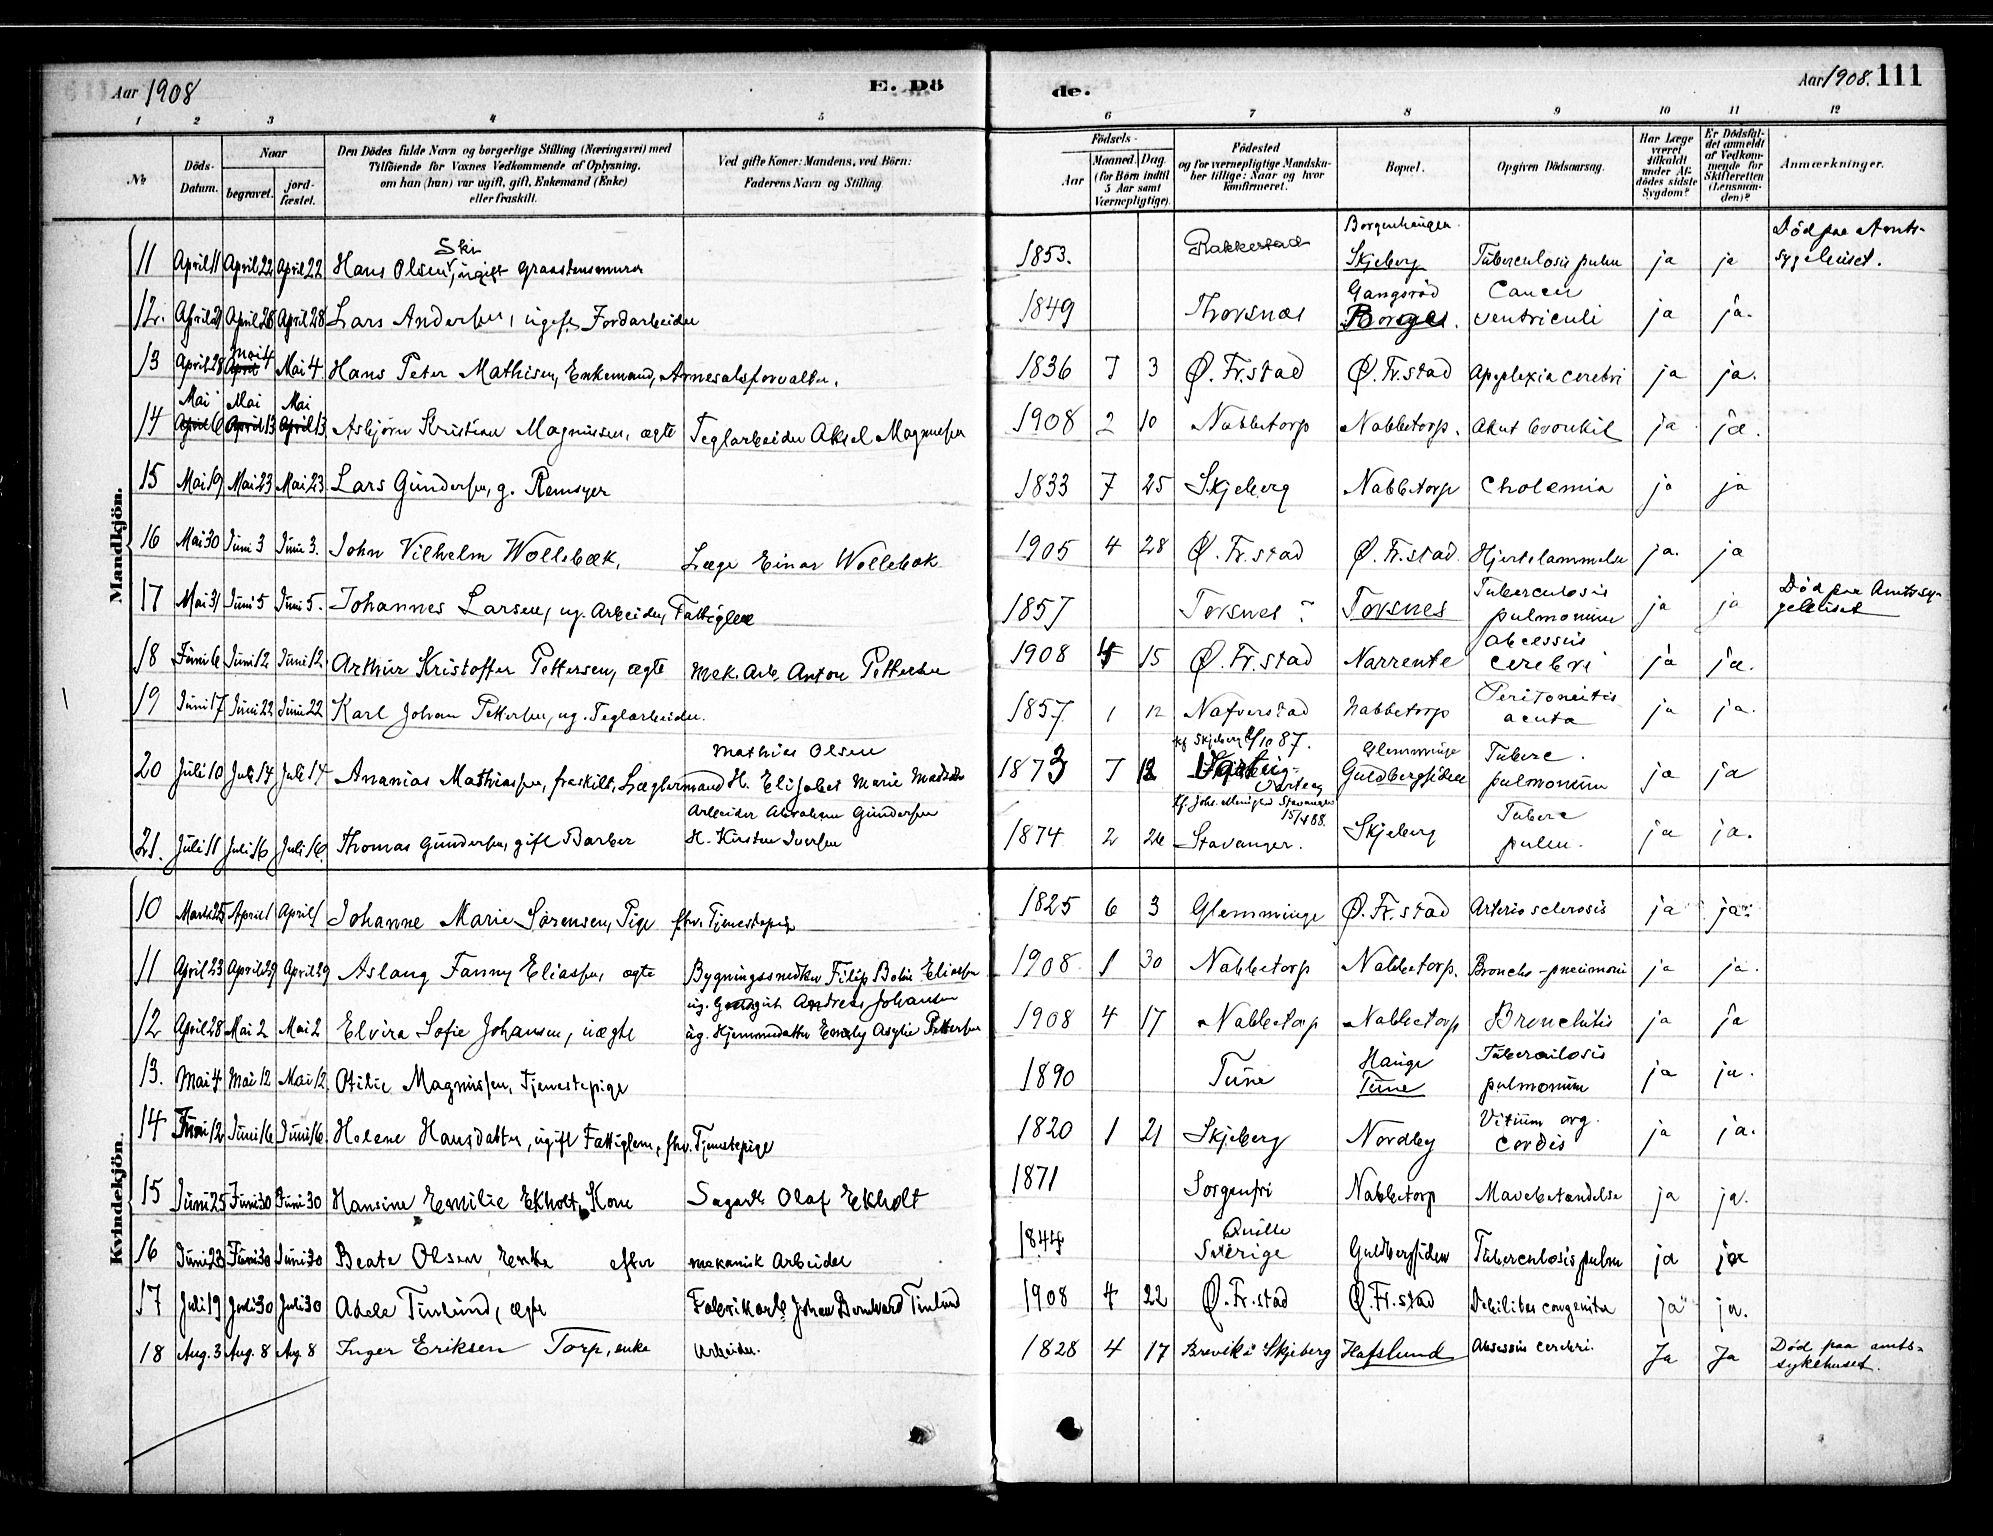 Aar 1908
E. Dö
de.
Aar 1908. 111
1 2 3 4 5 6 7 8 9 10 11 12
№
Döds-Datum.
Naar
begravet.
jord-fæstet.
Den Dödes fulde Navn og borgerlige Stilling (Næringsvei) med
Tilföiende for Voxnes Vedkommende af Oplysning,
om han (hun) var ugift, gift, Enkemand (Enke)
eller fraskilt.
Ved gifte Koner: Mandens, ved Börn:
Faderens Navn og Stilling
Födsels-
Aar
Maaned. Dag.
(for Börn indtil
5 Aar samt
Værnepligtige).
Födested
og for værnepligtige Mandska-
ber tillige: Naar og hvor
konfirmeret.
Bopæl.
Opgiven Dödsaarsag.
Har Læge
været
tilkaldt
under Af-
dödes sidste
Sygdom?
Er Dödsfal-
det anmeldt
af Vedkom-
mende for
Skifteretten
(Lensman-
den)?
Anmærkninger.
Mandkjön.
11 April 11 April 22 April 22 Hans Olsen Ski, ugift Graastensmurer 1853. Rakkestad Borgenhaugen. Skjeberg Tuberculosis pulm ja ja Död paa Amts-
sygehuset.
12. April 21 April 28 April 28 Lars Andersen, ugift Jordarbeider 1849 Thorsnæs Gangsröd Borge. Cancer ventriculi ja ja.
13 April 28 Mai 4 Mai 4 Hans Peter Mathisen, Enkemand, 1836 7 3 Ø. Fr.stad Ø. Fr.stad Apoplexia cerebri ja ja.
14 Mai 6 Mai 13 Mai 13 Asbjörn Kristian Magnussen, ægte Teglarbeider Aksel Magnussen 1908 2 10 Nabbetorp Nabbetorp. Akut bronkit ja ja.
15 Mai 19 Mai 23 Mai 23 Lars Gundersen, g. Remsyer 1833 7 25 Skjeberg Nabbetorp Cholemia ja ja
16 Mai 30 Juni 3 Juni 3. John Vilhelm Wollebæk, Læge Einar Wollebæk 1905 4 28 Ø. Fr.stad Ø. Fr.stad Hjertelammelse ja. ja
17 Mai 31 Juni 5 Juni 5. Johannes Larsen, ug. Arbeider, Fattiglem 1857 Torsnes ? Torsnes Tuberculosis pulmonum ja ja Död paa Amtssy-
gehuset
18 Juni 6 Juni 12 Juni 12 Arthur Kristoffer Pettersen, ægte Mek. Arb. Anton Pettersen 1908 4 15 Ø. Fr.stad Narrente abcessus cerebri ja ja.
19 Juni 17 Juni 22 Juni 22 Karl Johan Pettersen, ug. Teglarbeider. 1857 1 12 Nafverstad Nabbetorp Peritoneitis acuta ja ja.
20 Juli 10 Juli 14 Juli 14 Ananias Mathiassen, fraskilt, Lægtermand Mathias Olsen H. Elisabet Marie 1873 7 12 kf Skjeberg 2/10 87. Varteig Glemminge Guldbergsiden Tuberc. pulmonum ja ja
21. Juli 11 Juli 16 Juli 16 Thomas Gundersen, gift Barber Arbeider Abraham Gundersen H. Kirsten Iversen 1874 2 26 Stavanger. Skjeberg Tuberc pulm. ja ja.
Kvindekjön.
10 Marts 25 April 1 April 1 Johanne Marie Sørensen, Pige fhv. Tjenestepige 1825 6 3 Glemminge Ø. Fr.stad Arterio sclerosis ja ja.
11 April 23 April 29 April 29 Aslaug Fanny Eliassen, ægte Bygningssnedker Filip Eliassen 1908 1 30 Nabbetorp Nabbetorp. Broncho-pneumoni ja ja.
12 April 28 Mai 2 Mai 2 Elvira Sofie Johansen, uægte ug. Andreas Johansen
ug. Hjemmedatter Emely Pettersen 1908 4 17 Nabbetorp Nabbetorp Bronchitis ja ja
13. Mai 4 Mai 12 Mai 12 Otilie Magnussen, Tjenestepige 1890 Tune Hauge Tune Tuberculosis pulmonum ja ja.
14 Juni 12 Juni 16 Juni 16 Helene Hansdatter, ugift Fattiglem, fhv. Tjenestepige 1820 1 21 Skjeberg Nordby Vitium org. Cordis ja ja.
15 Juni 25 Juni 30 Juni 30 Hansine Emilie Ekholt, Kone Sagarb. Olaf Ekholt 1871 Sorgenfri Nabbetorp Mavebetændelse ja ja.
16 Juni 23 Juni 30 Juni 30 Beate Olsen, Enke efter mekanisk Arbeider 1844 Quille Sverige Guldbergsiden Tuberculosis pulm ja ja
17 Juli 19 Juli 30 Juli 30 Adele Tinlund, ægte Fabrikarb. Johan Bernhard Tinlund 1908 4 22 Ø. Fr.stad Ø. Fr.stad Debilitas congenita ja ja.
18 Aug. 3 Aug. 8 Aug. 8 Inger Eriksen Torp, enke Arbeider. 1828 4 17 Brevik i Skjeberg Hafslund Absessus cerebri. Ja Ja Död paa amts-
sykehuset.